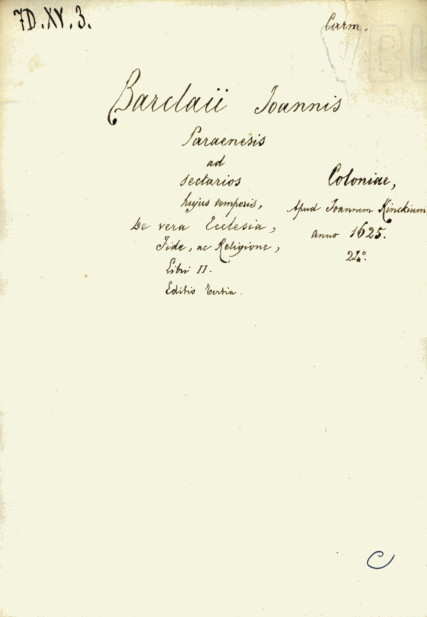 7D.XV.3.
Carm.
Barclaii Joannis
Paraenesis
ad
sectarios
hujus temporis,
De vera Ecclesia,
Fide, ac Religione,
Libri II.
Editio tertia.
Coloniae,
Apud Joannem Kinckium
Anno 1625.
24°.
C